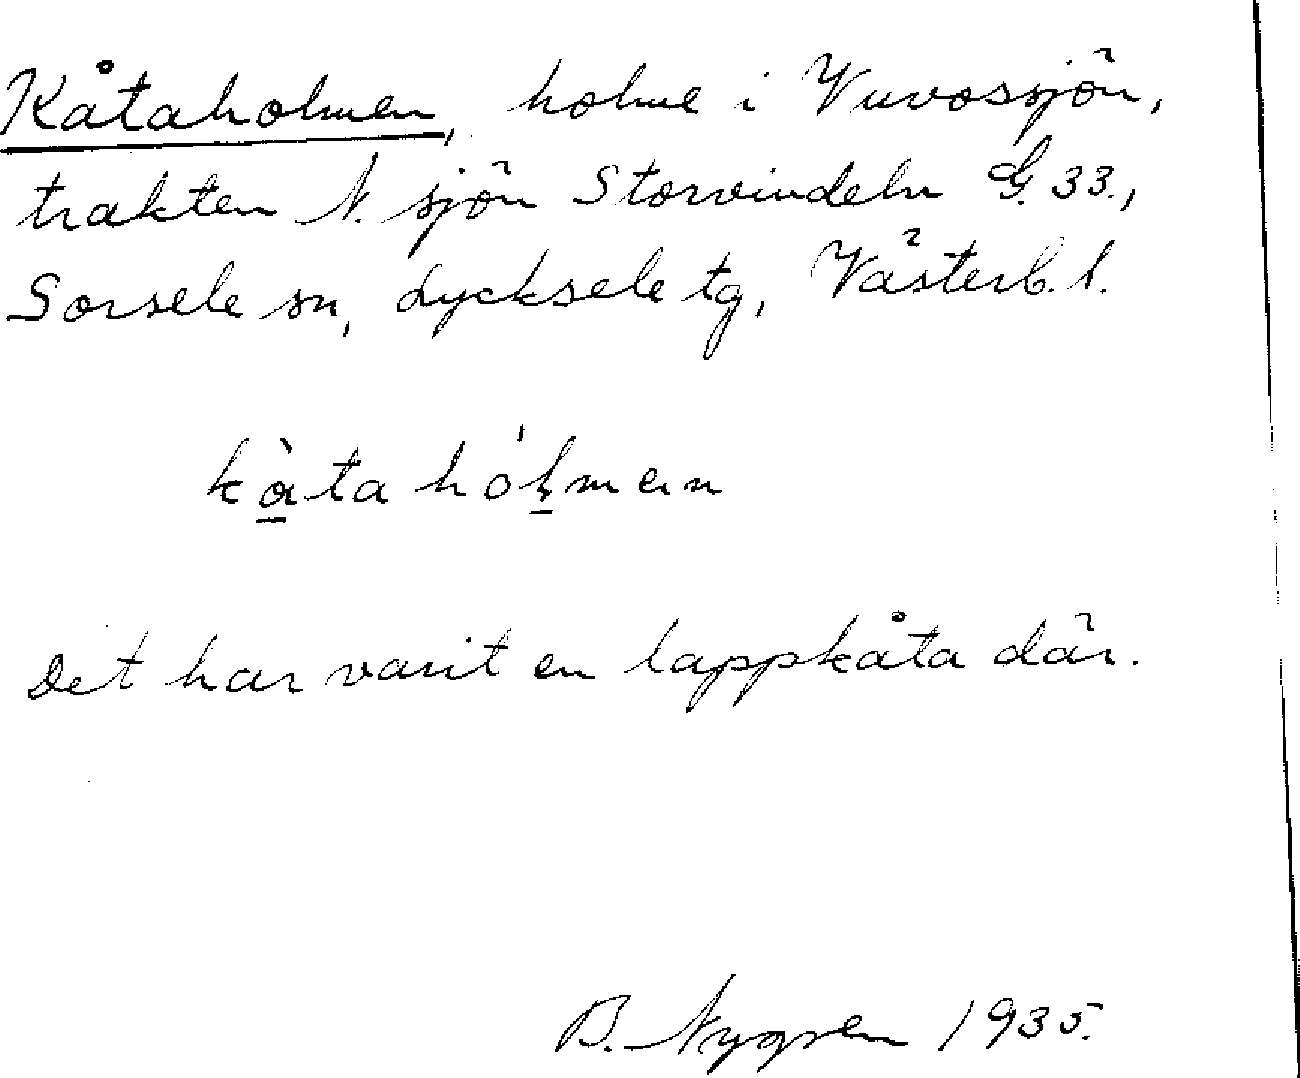 Kåtaholmen, holme i Vuvossjön,
trakten N. sjön Storvindeln G. 33.,
Sorsele sn, Lycksele tg, Västerb. l.
kàta hólmen
Det har varit en lappkåta där.
B. Nygren 1935.